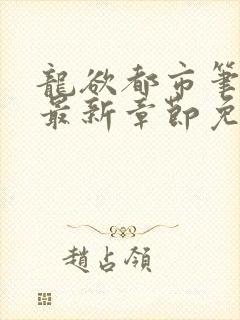 龍欲都市筆
最新章節免
趙占領